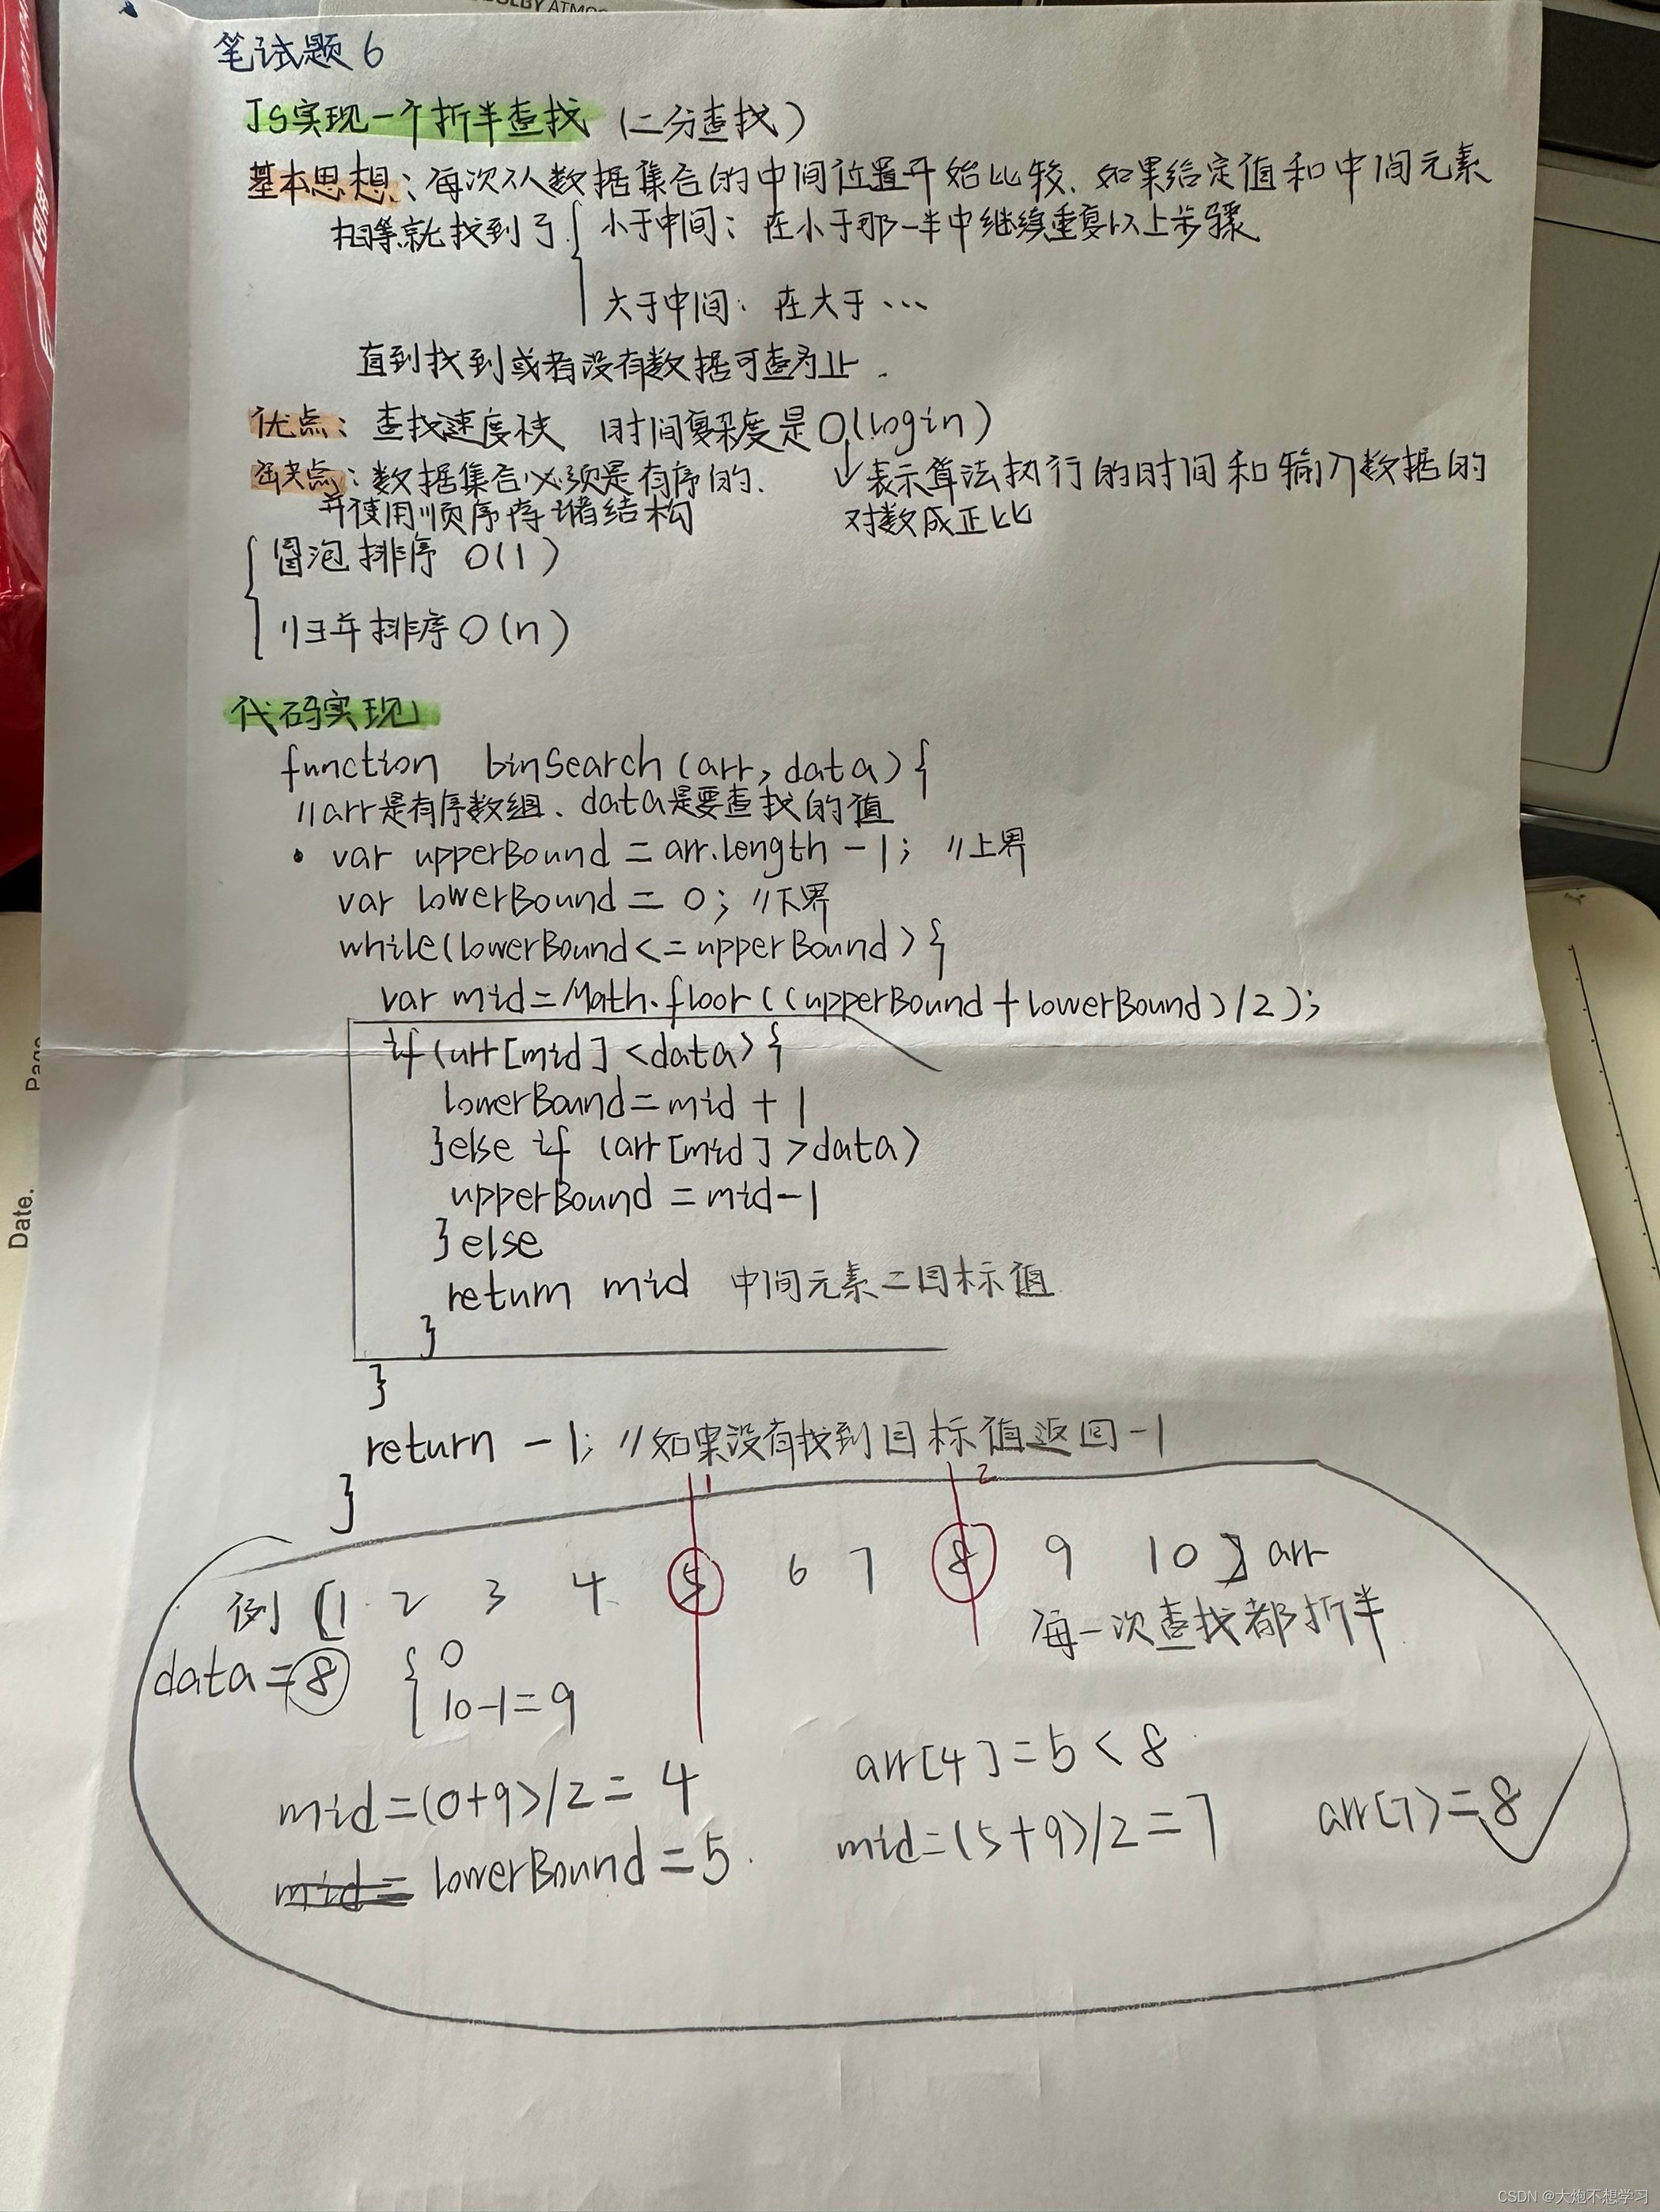 笔试题6
JS实现一个折半查找（二分查找）
基本思想：每次从数据集合的中间位置开始比较、如果给定值和中间元素
相等就找到了{ 小于中间：在小于那一半中继续重复以上步骤
大于中间：在大于…
直到找到或者没有数据可查为止.
优点：查找速度快 时间复杂度是O(login)
缺点：数据集合必须是有序的.
并使用顺序存储结构
↓表示算法执行的时间和输入数据的
对数成正比
{ 冒泡排序 O(1)
归并排序 O(n)
代码实现
function binSearch(arr, data){
//arr是有序数组、data是要查找的值
• var upperBound = arr.length - 1; //上界
var lowerBound = 0; //下界
while(lowerBound<=upperBound){
var mid=Math.floor((upperBound+lowerBound)/2);
if(arr[mid]<data){
lowerBound=mid+1
}else if (arr[mid]>data)
upperBound=mid-1
}else
return mid 中间元素=目标值
}
}
return -1; //如果没有找到目标值返回-1
}
1 2
例 [1 2 3 4 5 6 7 8 9 10] arr
每一次查找都折半
data=8 { 0
10-1=9
mid=(0+9)/2=4
arr[4]=5<8
mid= lowerBound=5.
mid=(5+9)/2=7
arr[7]=8
Date.
Page
CSDN @大炮不想学习